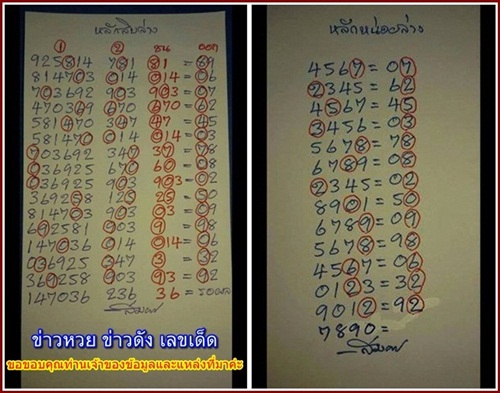 หลักสิบล่าง
① ② ชน ออก
925814 781 81 = 89
814703 014 014 = 06
703692 903 903 = 07
470369 670 670 = 62
581470 347 47 = 45
581470 014 014 = 03
703692 347 37 = 78
036925 670 60 = 08
036925 903 903 = 02
369258 125 25 = 50
814703 903 03 = 09
692581 903 9 = 98
147036 014 014 = 06
036925 347 3 = 32
369258 903 93 = 92
147036 236 36 = รอออก
ข่าวหวย ข่าวดัง เลขเด็ด
ขอขอบคุณท่านเจ้าของข้อมูลและแหล่งที่มาค่ะ
หลักหน่วยล่าง
4567 = 07
2345 = 62
4567 = 45
3456 = 03
5678 = 78
6789 = 08
2345 = 02
8901 = 50
6789 = 09
5678 = 98
4567 = 06
0123 = 32
9012 = 92
7890 =